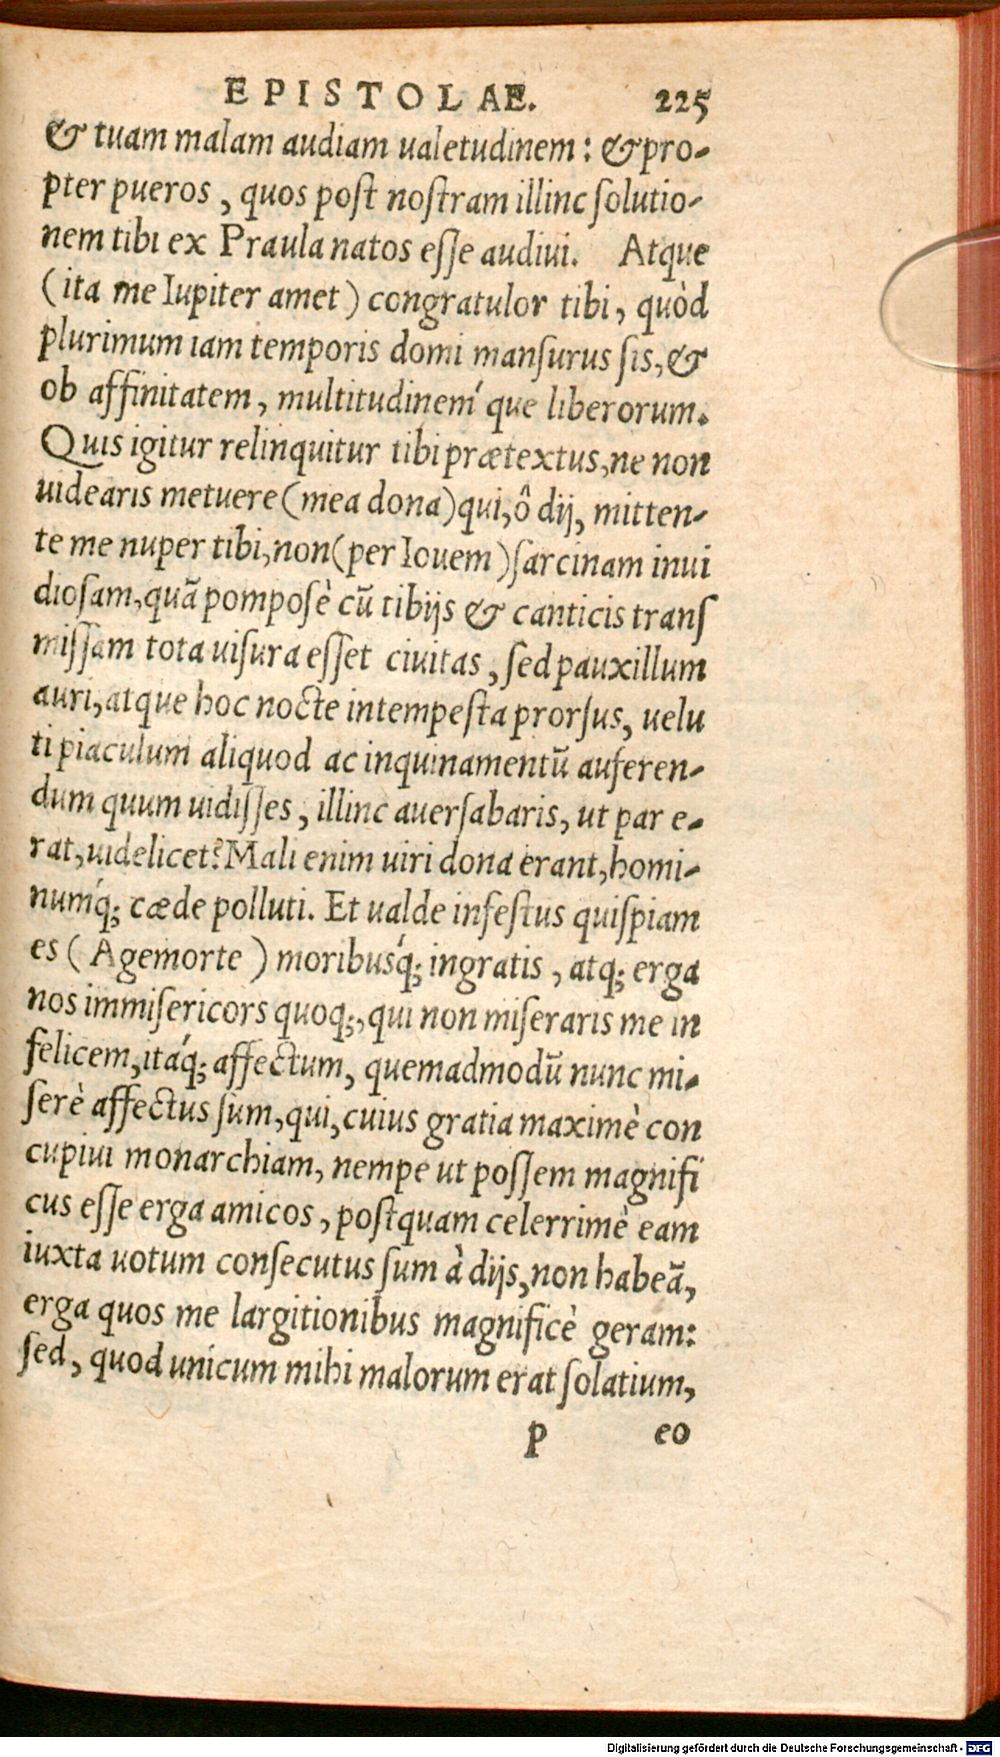 EPISTOLAE. 225
& tuam malam audiam ualetudinem: & pro-
pter pueros, quos post nostram illinc solutio-
nem tibi ex Praula natos esse audiui. Atque
(ita me Iupiter amet) congratulor tibi, quòd
plurimum iam temporis domi mansurus sis, &
ob affinitatem, multitudineḿ que liberorum.
Quis igitur relinquitur tibi prætextus, ne non
uidearis metuere (mea dona) qui, ô dij, mitten-
te me nuper tibi, non (per Iouem) sarcinam inui
diosam, quã pomposè cũ tibijs & canticis trans
missam tota uisura esset ciuitas, sed pauxillum
auri, atque hoc nocte intempesta prorsus, uelu
ti piaculum aliquod ac inquinamentũ auferen-
dum quum uidisses, illinc auersabaris, ut par e-
rat, uidelicet? Mali enim uiri dona erant, homi-
numq́; cæde polluti. Et ualde infestus quispiam
es (Agemorte) moribusq́; ingratis, atq; erga
nos immisericors quoq;, qui non miseraris me in
felicem, itaq́; affectum, quemadmodũ nunc mi-
serè affectus sum, qui, cuius gratia maximè con
cupiui monarchiam, nempe ut possem magnifi
cus esse erga amicos, postquam celerrimè eam
iuxta uotum consecutus sum à dijs, non habeã,
erga quos me largitionibus magnificè geram:
sed, quod unicum mihi malorum erat solatium,
p eo
Digitalisierung gefördert durch die Deutsche Forschungsgemeinschaft - DFG